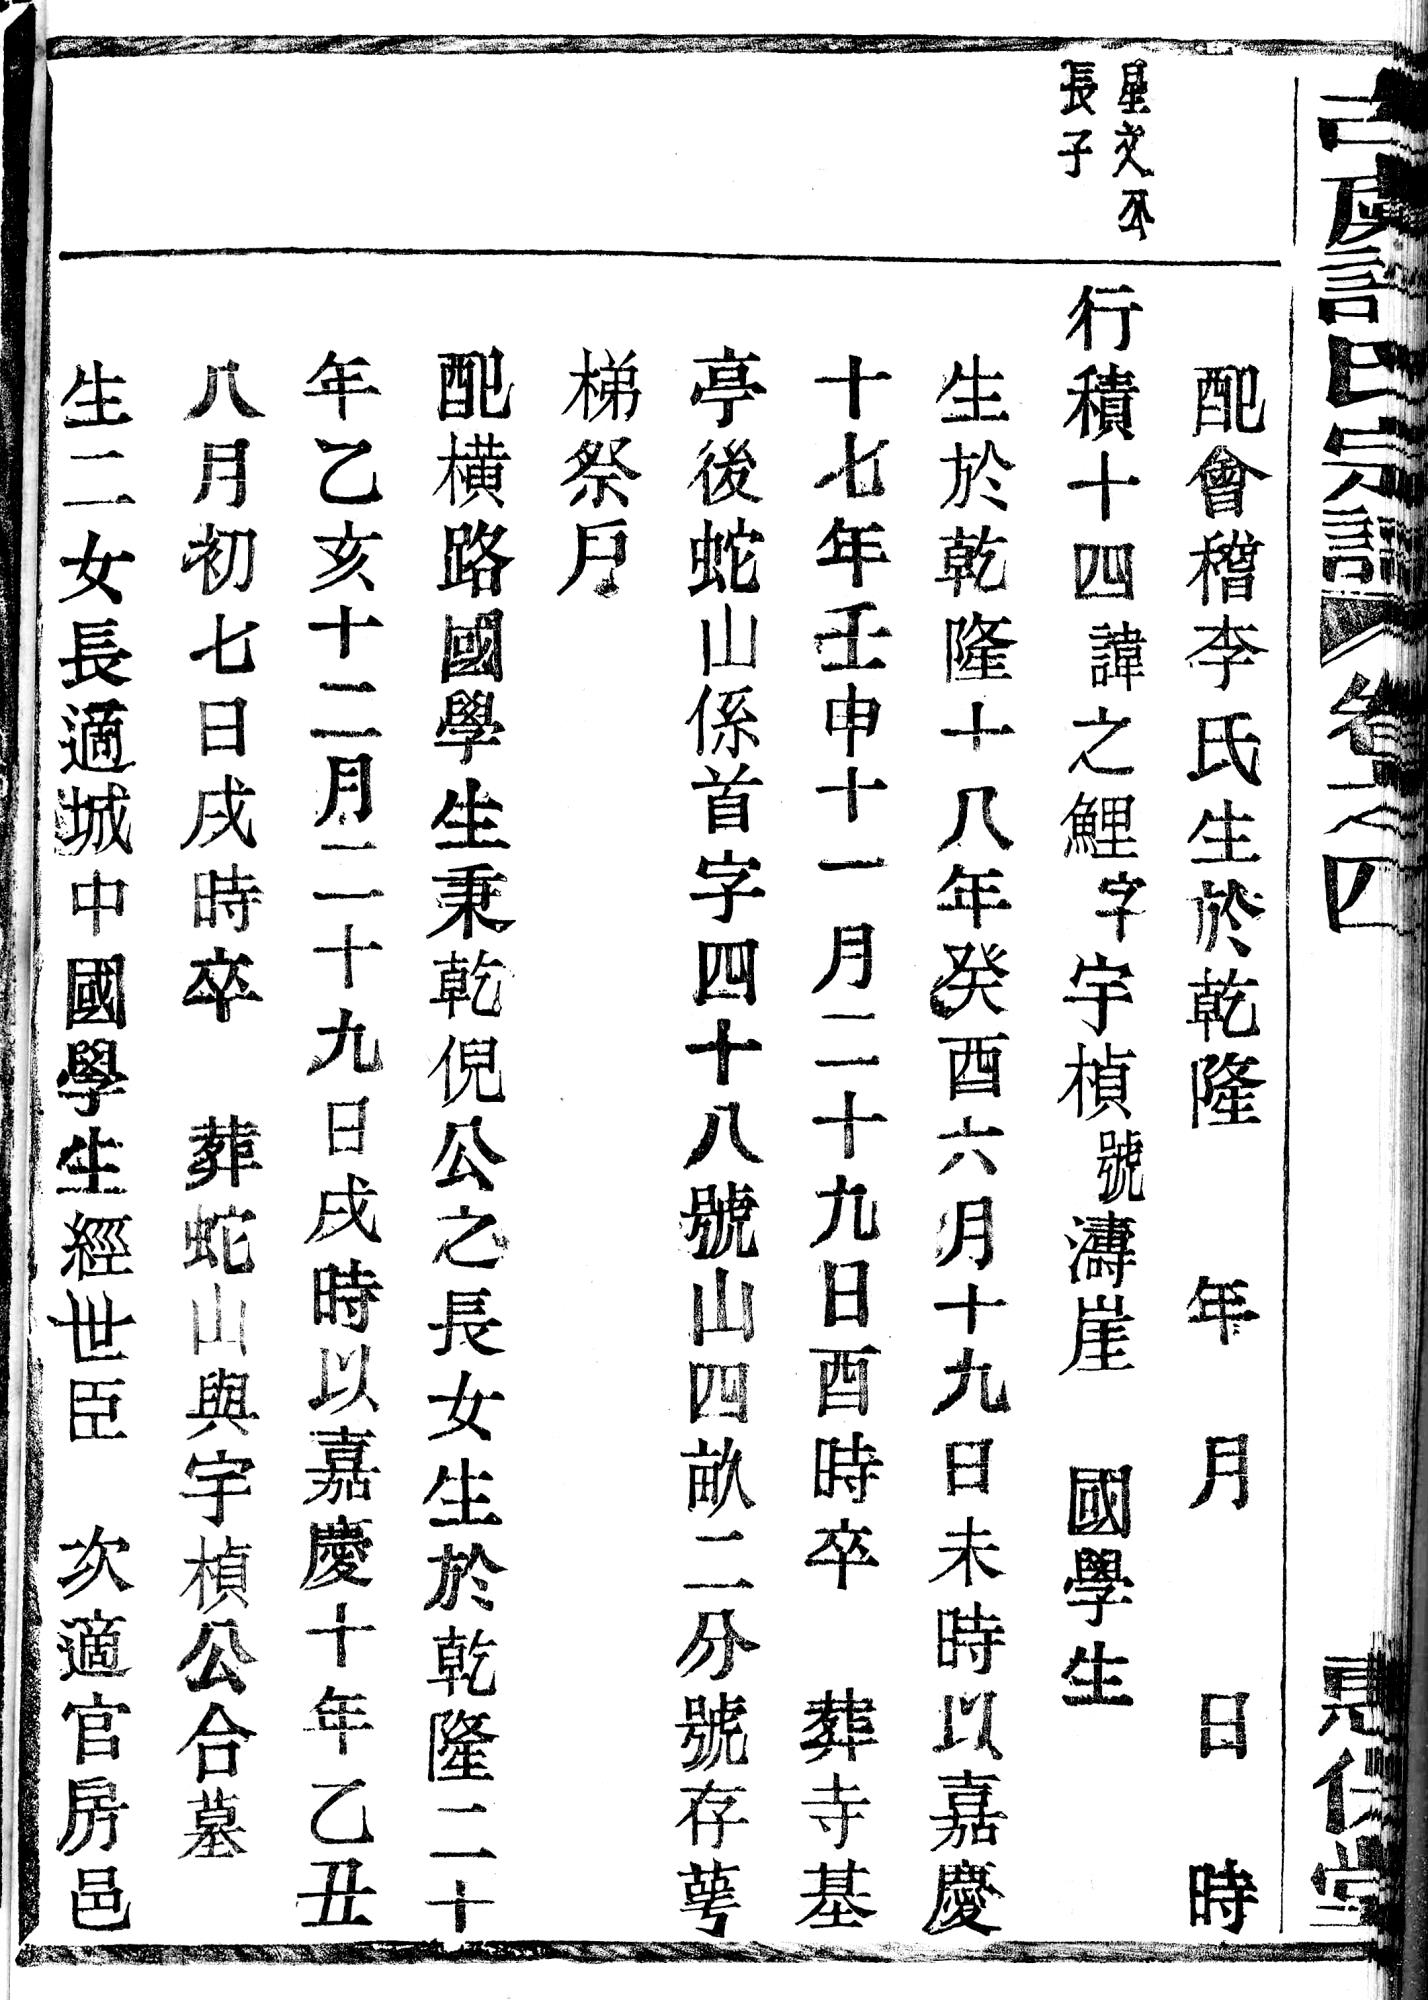 古虞許氏宗譜 卷之四 惠伦堂
配會稽李氏生於乾隆 年 月 日 時
星文公
長子
行積十四諱之鯉字宇楨號濤崖 國學生
生於乾隆十八年癸酉六月十九日未時以嘉慶
十七年壬申十一月二十九日酉時卒 葬寺基
亭後蛇山係首字四十八號山四畝二分號存萼
梯祭戶
配橫路國學生秉乾倪公之長女生於乾隆二十
年乙亥十二月二十九日戌時以嘉慶十年乙丑
八月初七日戌時卒 葬蛇山與宇楨公合墓
生二女長適城中國學生經世臣 次適官房邑